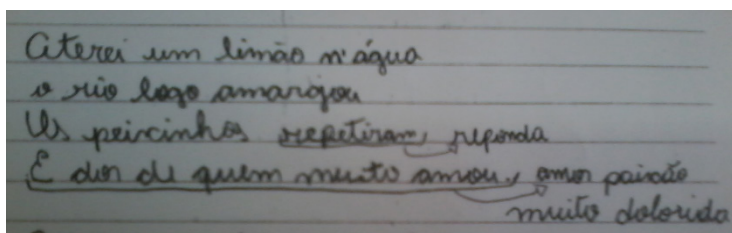 Aterei um limão n'água
o rio logo amargou
Us peixinhos repetiram, reponda
É dor de quem muito amou, amor paixão
muito dolorida